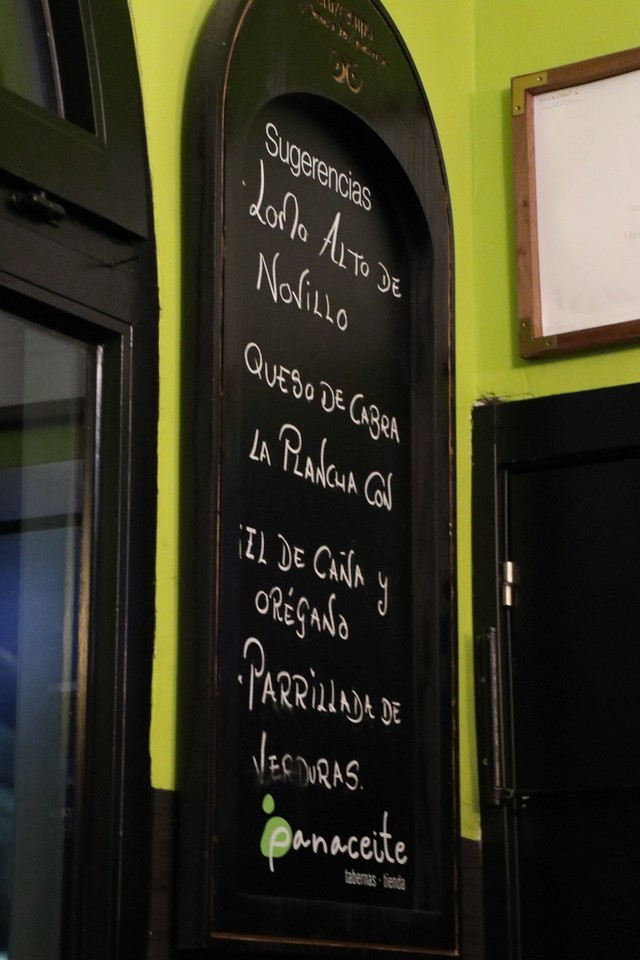 Sugerencias
· LOMO ALTO DE
NOVILLO
QUESO DE CABRA
LA PLANCHA CON
IEL DE CAÑA Y
ORÉGANO
· PARRILLADA DE
VERDURAS.
panaceite
tabernas · tienda